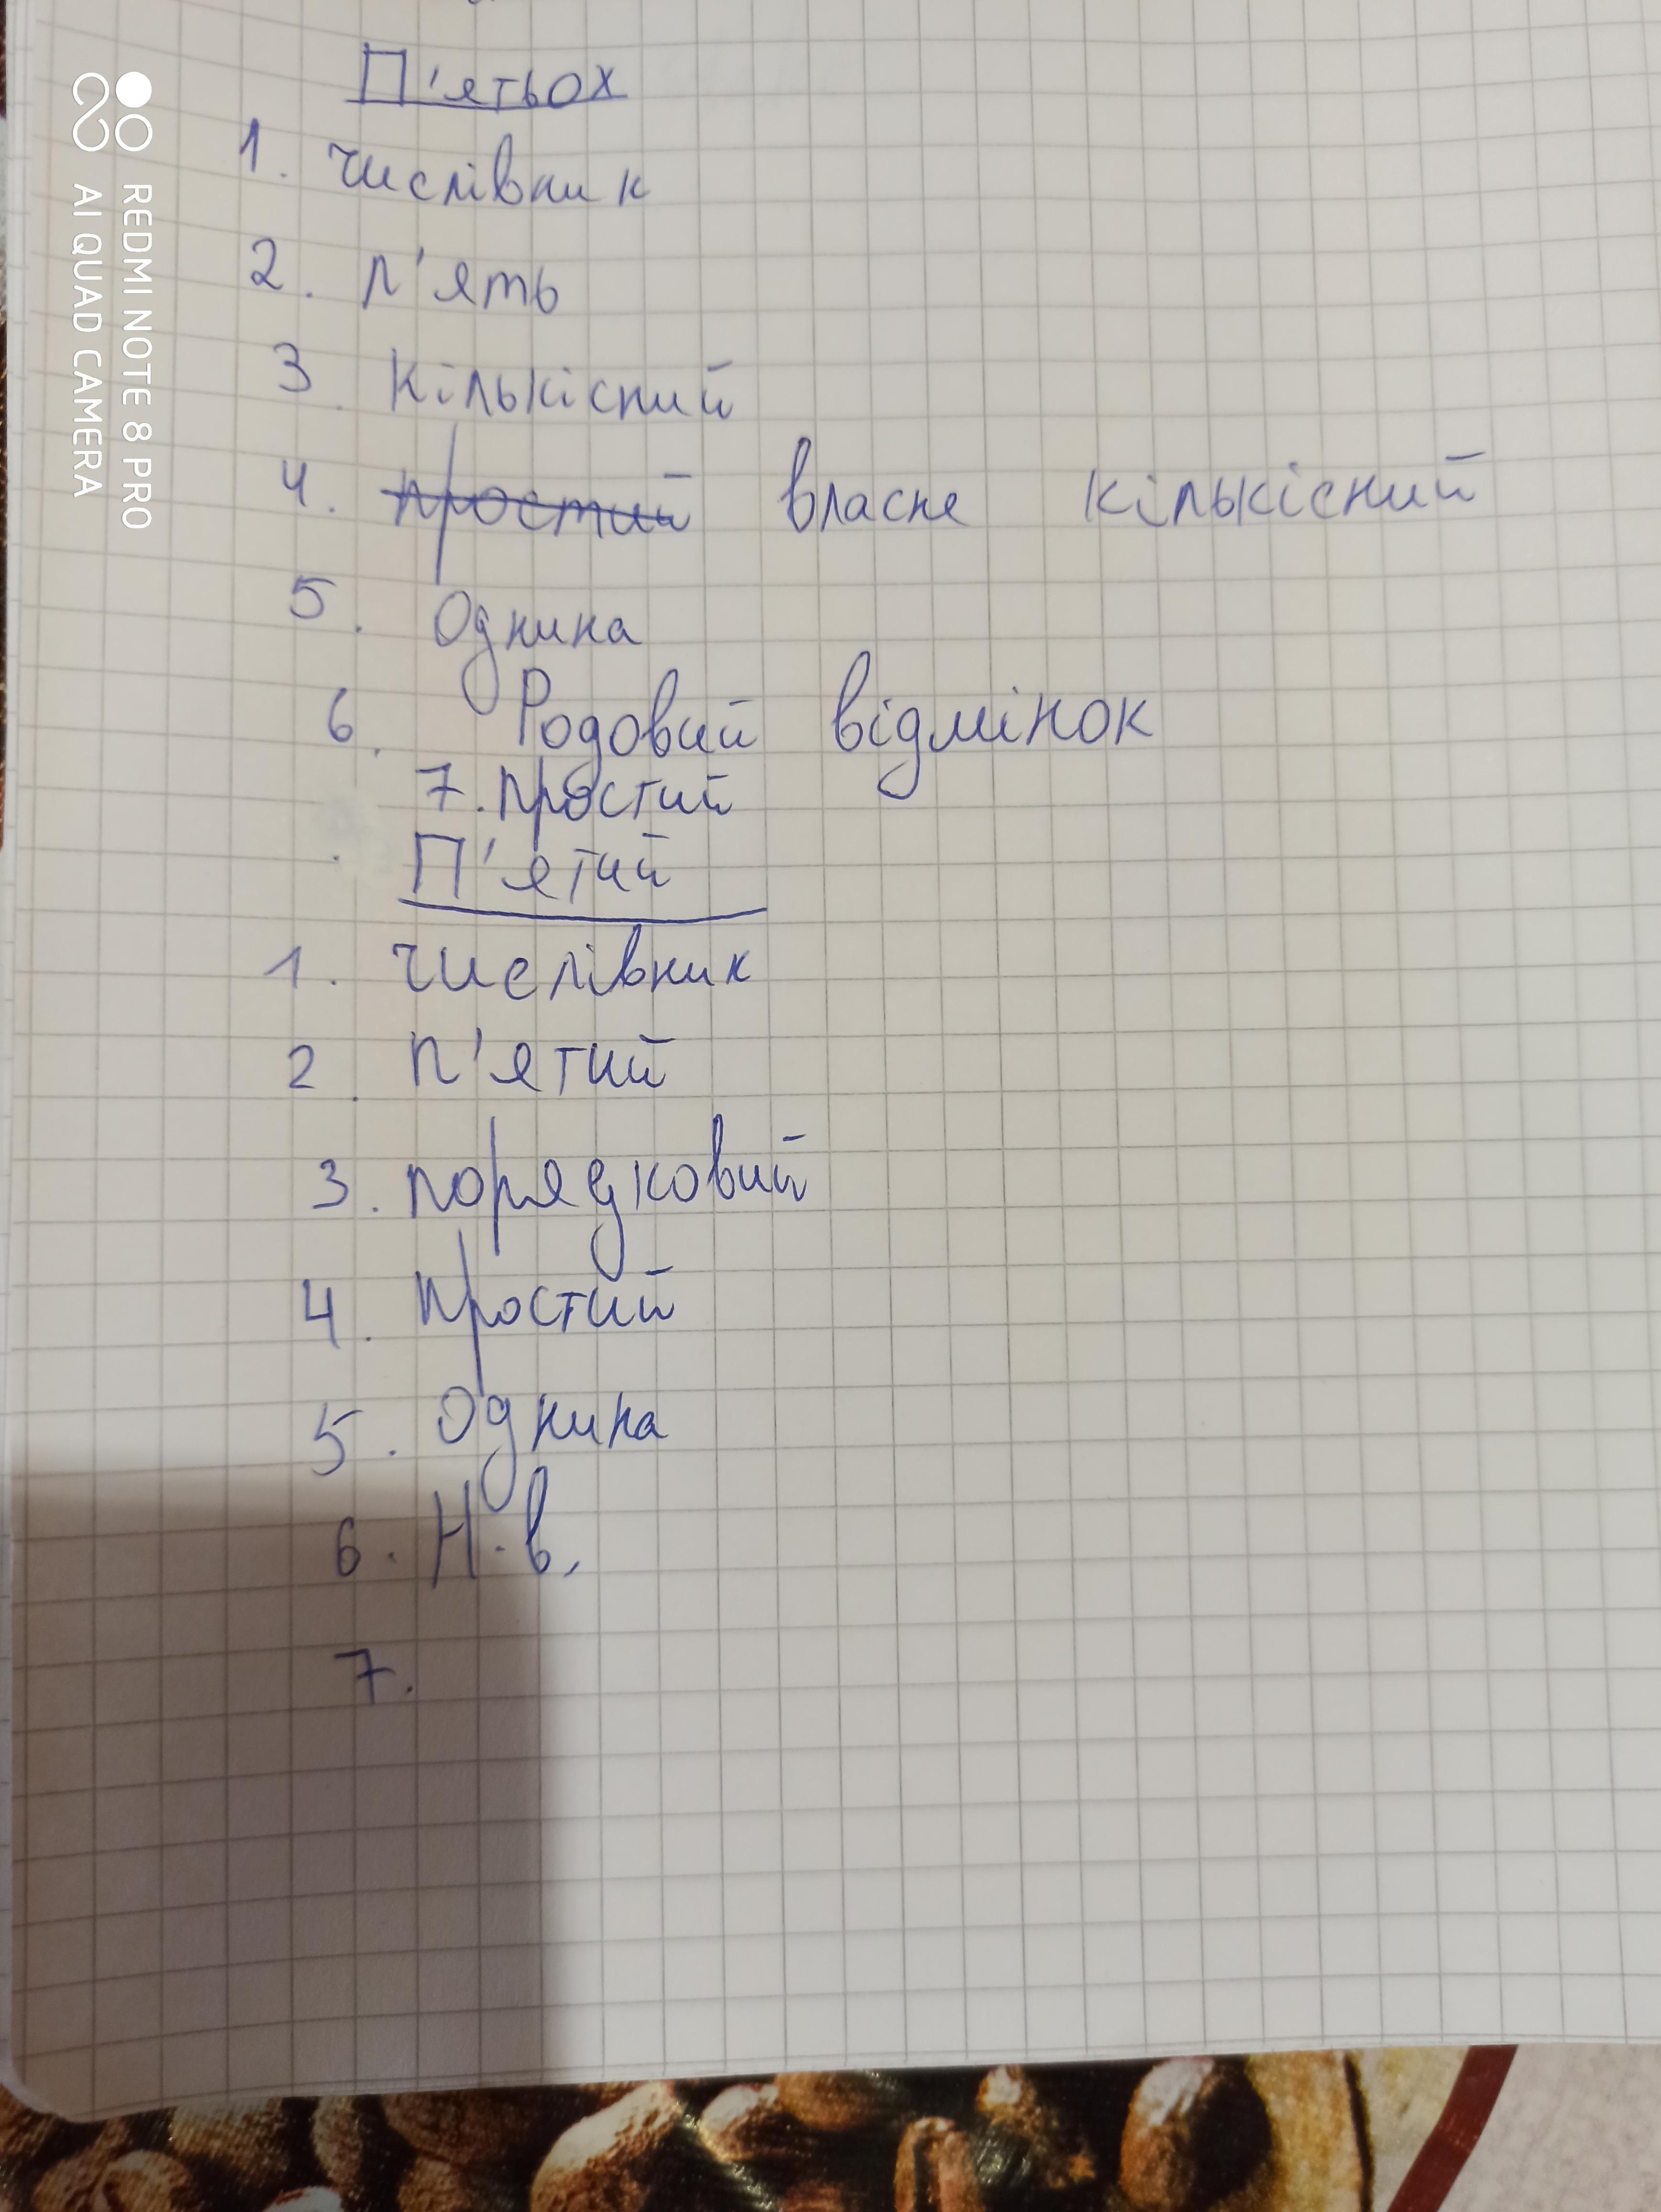 П'ятьох
1. числівник
2. п'ять
3. Кількісний
4. простий власне кількісний
5. Однина
6. Родовий відмінок
7. простий
П'ятий
1. числівник
2. п'ятий
3. порядковий
4. простий
5. Однина
6. Н.в.
7.
REDMI NOTE 8 PRO
AI QUAD CAMERA